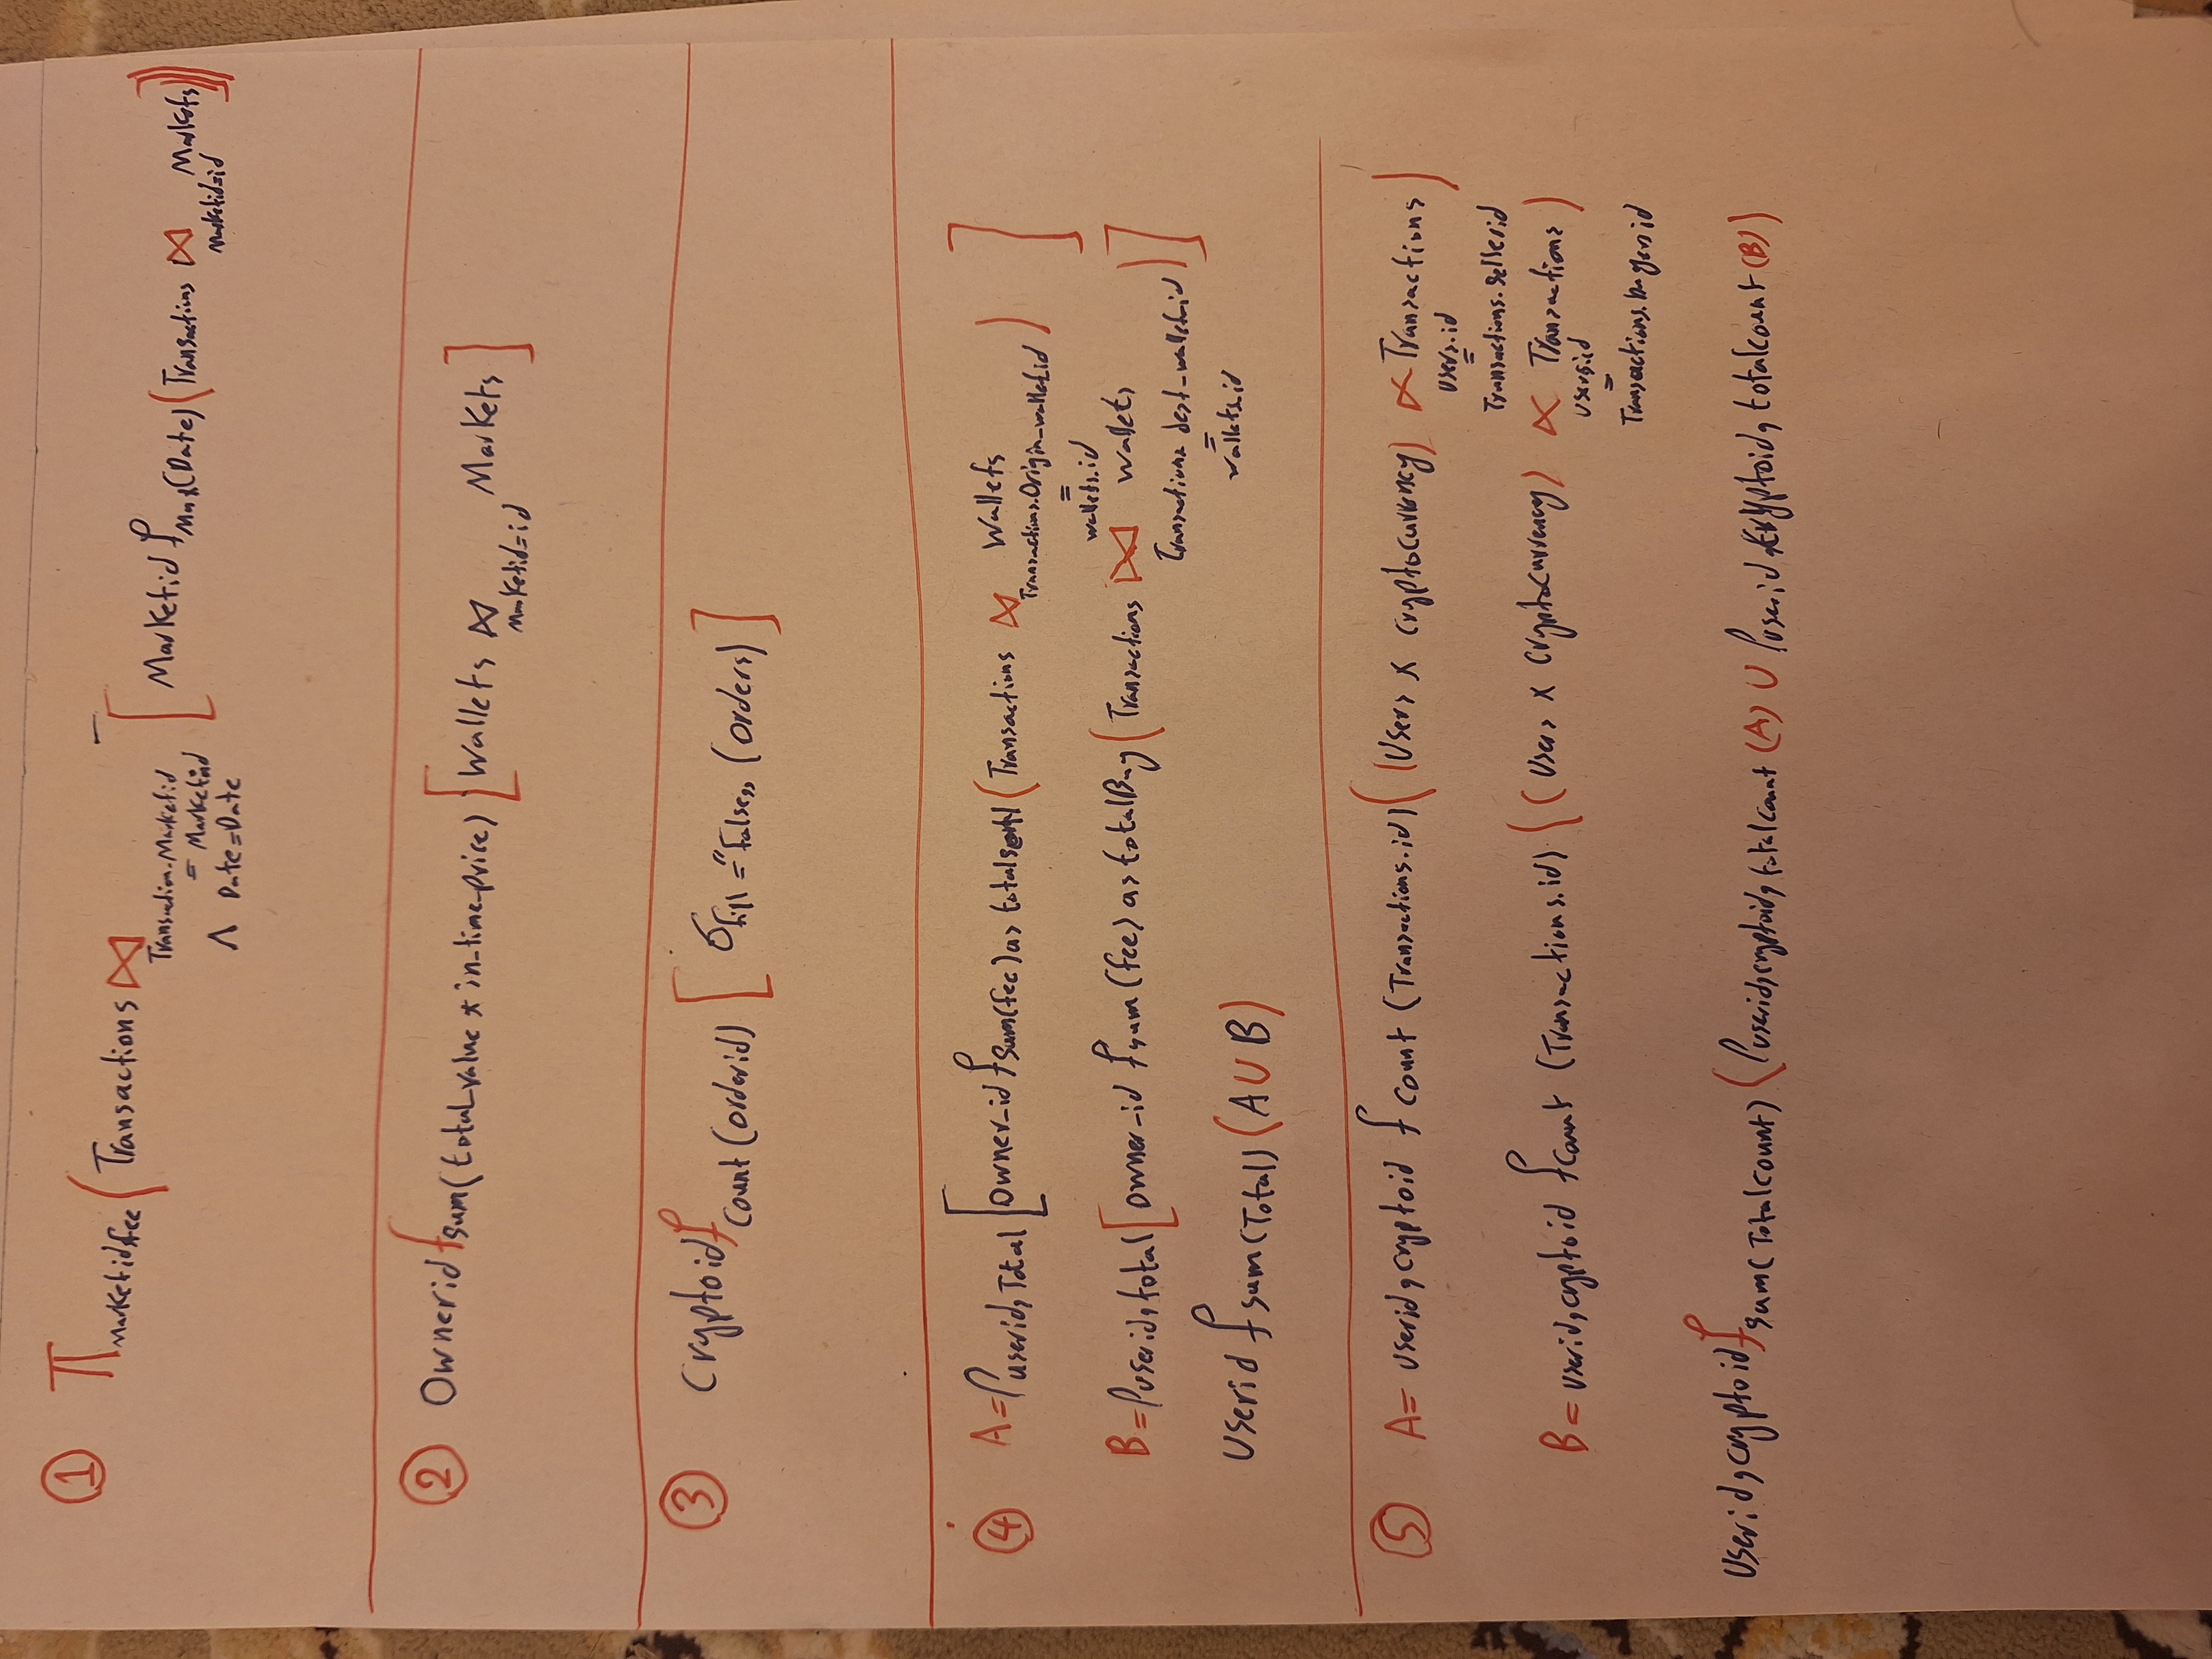 ① π Marketid,fee ( Transactions ⋈ Transaction.Marketid = Marketid ∧ Date=Date [ Marketid ƒ Max(Date) ( Transactions ⋈ Marketid=id Markets ) ] )
② Ownerid ƒ sum(total_value * in_time_price) [ Wallets ⋈ Marketid=id Markets ]
③ Cryptoid ƒ Count(orderid) [ σ fill = "False" (orders) ]
④ A = ρ userid, Total [ owner_id ƒ sum(fee) as ( Transactions ⋈ Transactions.Origin_wallet.id = wallets.id Wallets ) ]
B = ρ userid, total [ owner_id ƒ sum(fee) as totalBuy ( Transactions ⋈ Transactions dest_wallet_id = wallets.id wallets ) ]
userid ƒ sum(Total) (A ∪ B)
⑤ A = userid, cryptoid ƒ count (Transactions.id) ( (Users × cryptocurrency) ⋉ users.id = Transactions.sellerid Transactions )
B = userid, cryptoid ƒ Count (Transactions.id) ( (Users × Cryptocurrency) ⋉ users.id = Transactions.buyerid Transactions )
userid, cryptoid ƒ sum(Totalcount) ( ρ userid, cryptoid, totalcount (A) ∪ ρ userid, cryptoid, totalcount (B) )